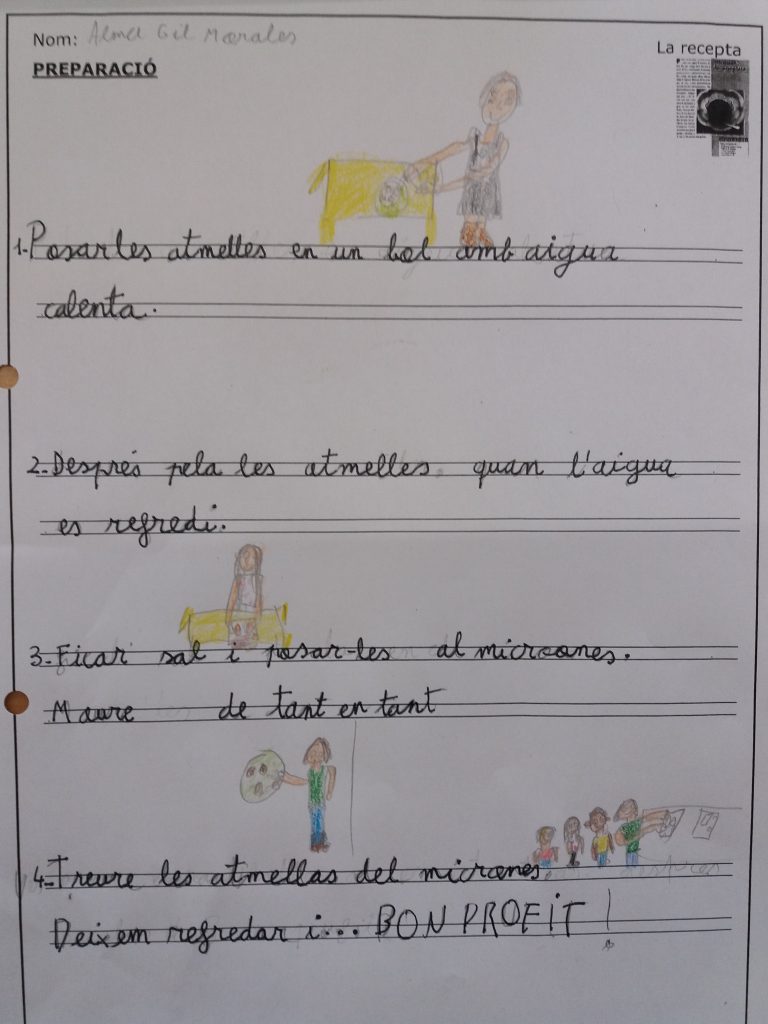 Nom: Alma Gil Morales
La recepta
PREPARACIÓ
1-Posar les atmelles en un bol amb aigua
calenta.
2-Després pela les atmelles quan l'aigua
es refredi.
3-Ficar sal i posar-les al microones.
Maure de tant en tant
4-Treure les atmellas del micrones.
Deixem refredar i... BON PROFIT!